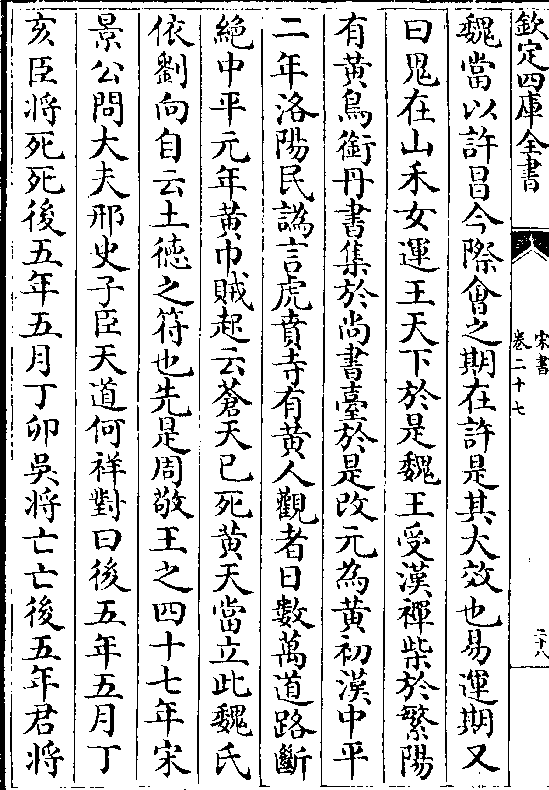 欽定四庫全書
宋書
卷二十七
二十八
魏當以許昌今際會之期在許是其大效也易運期又
曰鬼在山禾女運王天下於是魏王受漢禪柴於繁陽
有黃鳥銜丹書集於尚書臺於是改元為黃初漢中平
二年洛陽民譌言虎賁寺有黃人觀者日數萬道路斷
絶中平元年黃巾賊起云蒼天已死黃天當立此魏氏
依劉向自云土德之符也先是周敬王之四十七年宋
景公問大夫邢史子臣天道何祥對曰後五年五月丁
亥臣將死死後五年五月丁卯吳將亡亡後五年君將